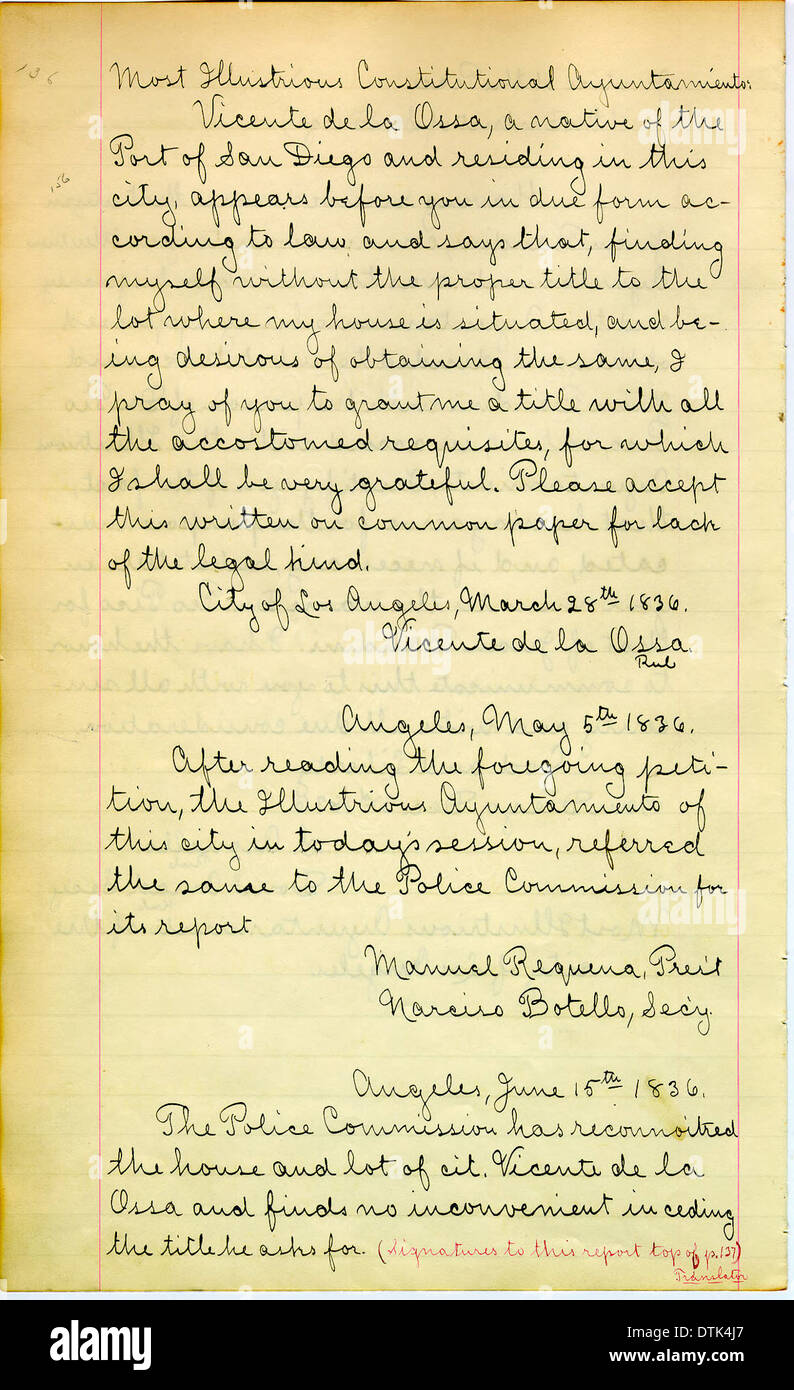 136
Most Illustrious Constitutional Ayuntamiento:
Vicente de la Ossa, a native of the
Port of San Diego and residing in this
156
city, appears before you in due form ac-
cording to law and says that, finding
myself without the proper title to the
lot where my house is situated, and be-
ing desirous of obtaining the same, I
pray of you to grant me a title with all
the accostomed requisites, for which
I shall be very grateful. Please accept
this written on common paper for lack
of the legal kind.
City of Los Angeles, March 28th 1836.
Vicente de la Ossa.
Rub
Angeles, May 5th 1836.
After reading the foregoing peti-
tion, the Illustrious Ayuntamiento of
this city in today's session, referred
the same to the Police Commission for
its report
Manuel Requena, Pres't
Narciso Botello, Sec'y.
Angeles, June 15th 1836.
The Police Commission has reconnoitred
the house and lot of cit. Vicente de la
Ossa and finds no inconvenient in ceding
the title he asks for. (Signatures to this report top of p. 137)
Translator
alamy
Image ID: DTK4J7
www.alamy.com